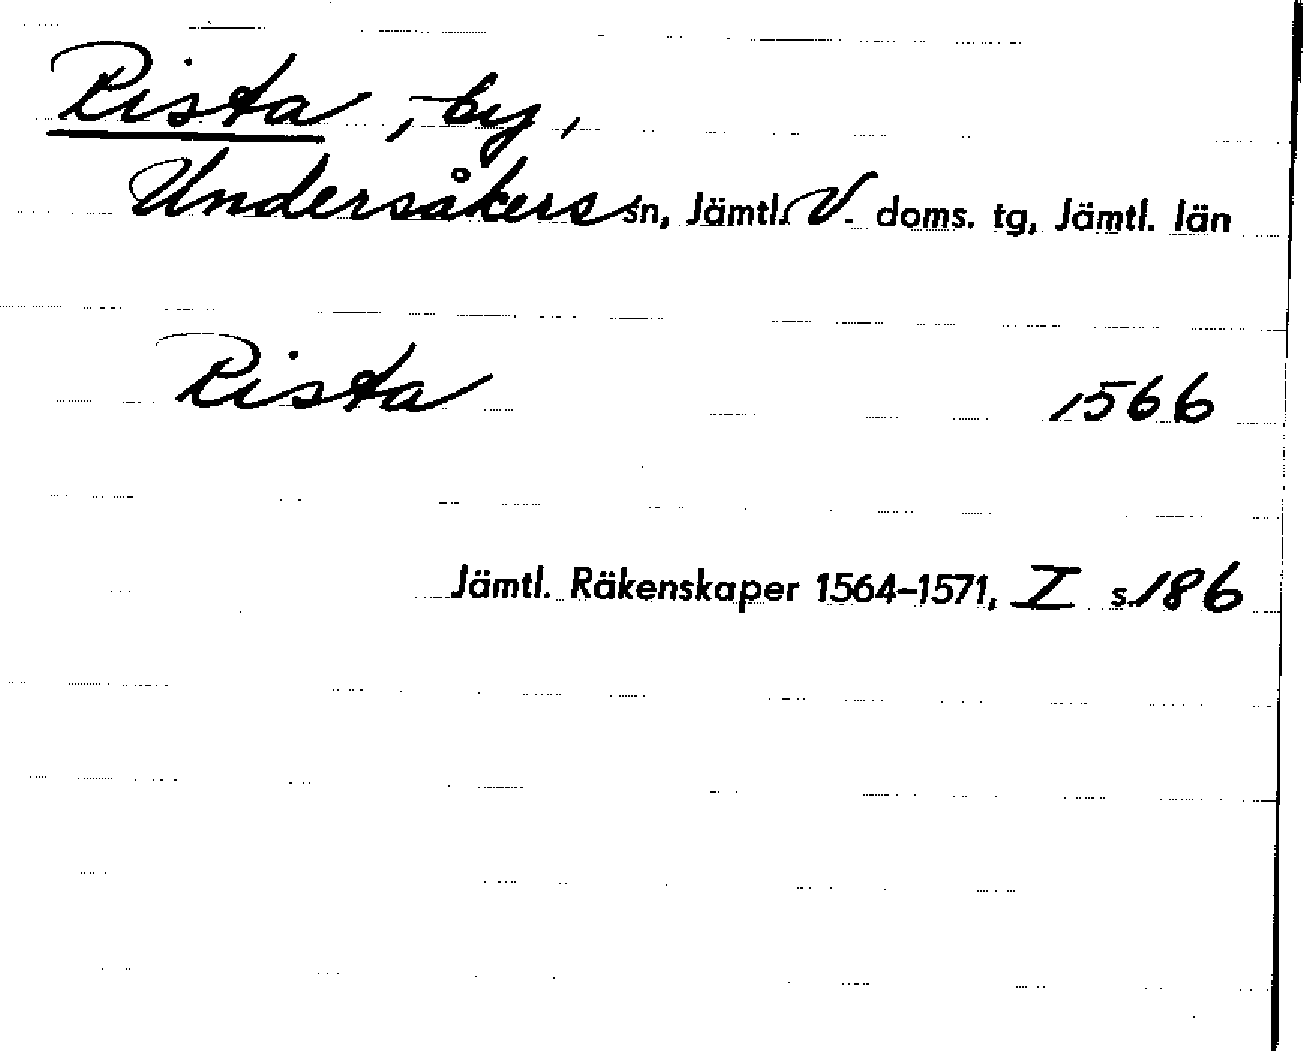 Rista, by,
Undersåkers sn, Jämtl. V. doms. tg, Jämtl. län
Rista 1566
Jämtl. Räkenskaper 1564–1571, I s. 186